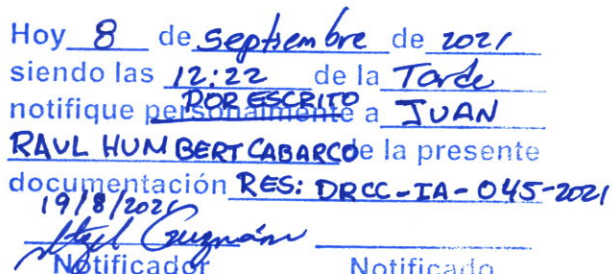 Hoy 8 de septiembre de 2021
siendo las 12:22 de la Tarde
notifique personalmente POR ESCRITO a JUAN
RAUL HUMBERT CABARCO de la presente
documentación RES: DRCC-IA-045-2021
19/8/2021
Guzmán
Notificador Notificado